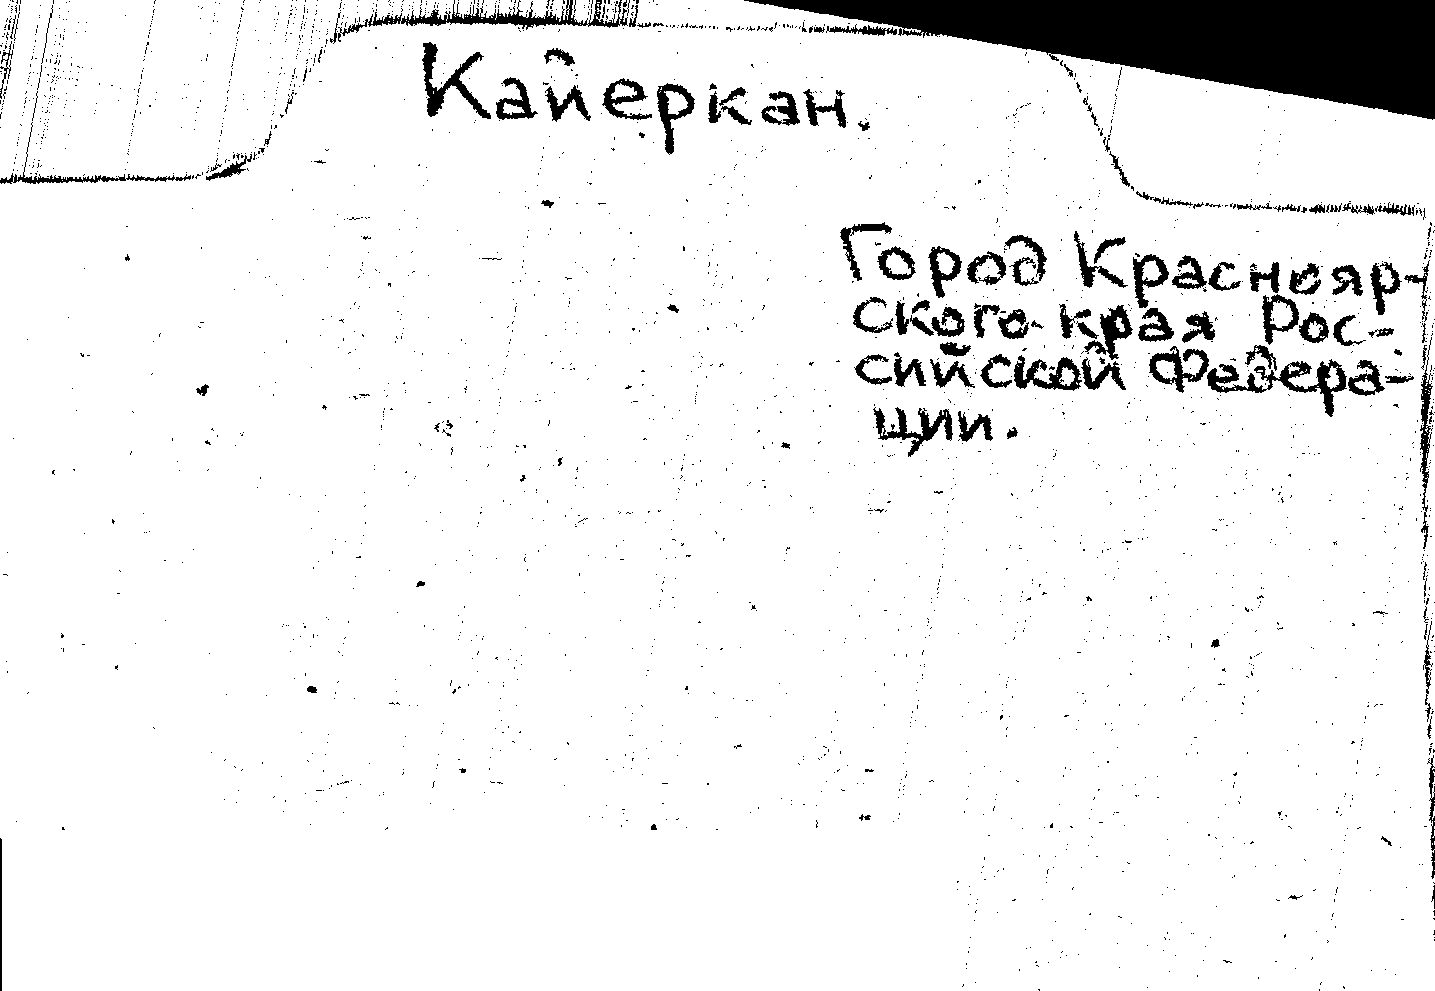 Кайеркан.
Город Краснояр-
ского края Рос-
сийской Федера-
ции.